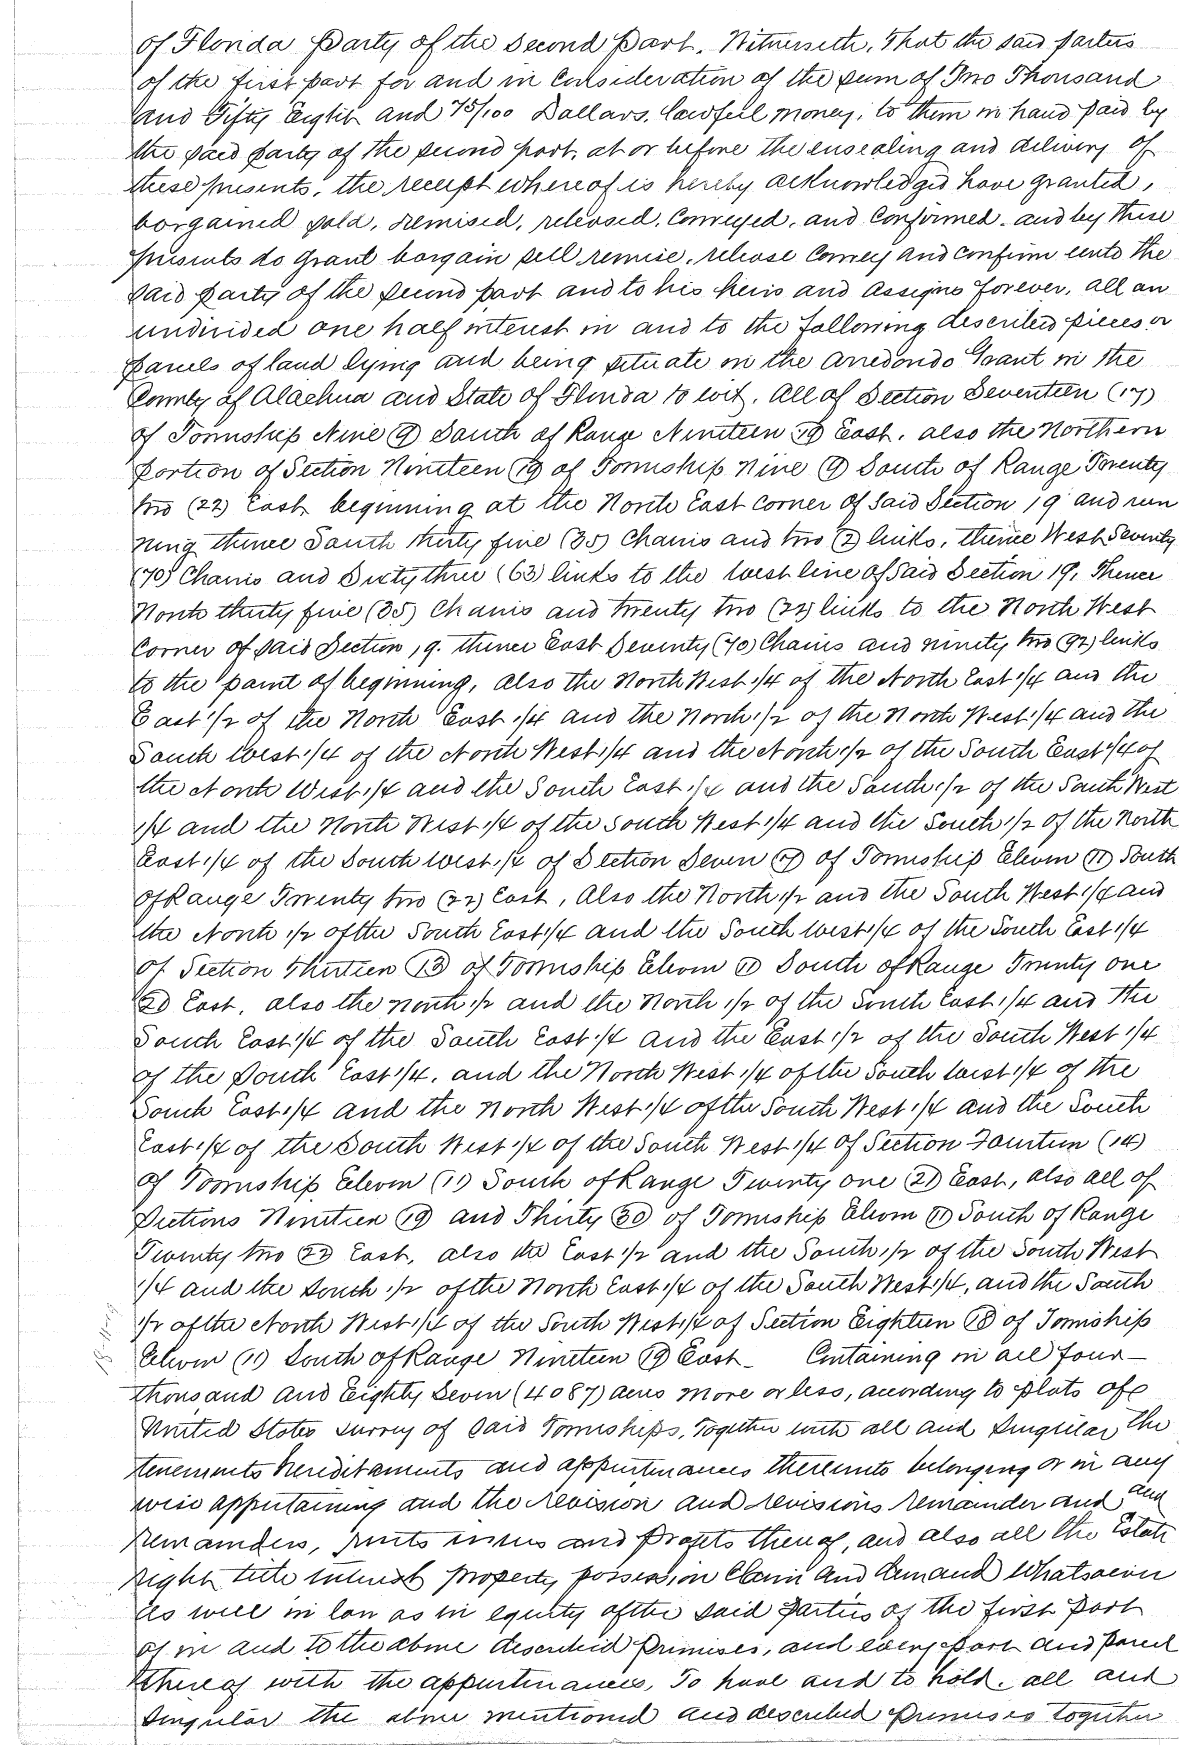 of Florida party of the Second part. Witnesseth, That the said parties
of the first part for and in Consideration of the sum of Two Thousand
and Fifty Eight and 75/100 Dollars, lawfull money, to them in hand paid by
the said party of the second part, at or before the ensealing and delivery of
these presents, the receipt whereof is hereby acknowledged have granted,
bargained sold, remised, released, Conveyed, and Confirmed, and by these
presents do grant bargain sell remise, release Convey and confirm unto the
said party of the second part and to his heirs and assigns forever, all an
undivided one half interest in and to the following described pieces or
parcels of land lying and being situate in the Arredondo Grant in the
County of Alachua and State of Florida to wit. All of Section Seventeen (17)
of Township Nine (9) South of Range Nineteen (19) East. also the Northern
portion of Section Nineteen (19) of Township Nine (9) South of Range Twenty
two (22) East beginning at the North East corner of said Section 19 and run
ning thence South thirty five (35) Chains and two (2) links, thence West Seventy
(70) Chains and Sixty three (63) links to the west line of said Section 19, Thence
North thirty five (35) Chains and twenty two (22) links to the North West
Corner of said Section 19. thence East Seventy (70) Chains and ninety two (92) links
to the point of beginning, also the North West 1/4 of the North East 1/4 and the
East 1/2 of the North East 1/4 and the North 1/2 of the North West 1/4 and the
South West 1/4 of the North West 1/4 and the North 1/2 of the South East 1/4 of
the North West 1/4 and the South East 1/4 and the South 1/2 of the South West
1/4 and the North West 1/4 of the South West 1/4 and the South 1/2 of the North
East 1/4 of the South West 1/4 of Section Seven (7) of Township Eleven (11) South
of Range Twenty two (22) East, Also the North 1/2 and the South West 1/4 and
the North 1/2 of the South East 1/4 and the South West 1/4 of the South East 1/4
of Section Thirteen (13) of Township Eleven (11) South of Range Twenty one
(21) East, also the North 1/2 and the North 1/2 of the South East 1/4 and the
South East 1/4 of the South East 1/4 and the East 1/2 of the South West 1/4
of the South East 1/4, and the North West 1/4 of the South West 1/4 of the
South East 1/4 and the North West 1/4 of the South West 1/4 and the South
East 1/4 of the South West 1/4 of the South West 1/4 of Section Fourteen (14)
of Township Eleven (11) South of Range Twenty one (21) East, also all of
Sections Nineteen (19) and Thirty (30) of Township Eleven (11) South of Range
Twenty two (22) East, also the East 1/2 and the South 1/2 of the South West
1/4 and the South 1/2 of the North East 1/4 of the South West 1/4, and the South
1/2 of the North West 1/4 of the South West 1/4 of Section Eighteen (18) of Township
Eleven (11) South of Range Nineteen (19) East_ Containing in all four-
thousand and Eighty Seven (4087) acres more or less, according to plats of
United States survey of said Townships, Together with all and Singular the
tenements hereditaments and appurtenances thereunto belonging or in any
wise appertaining and the revision and revisions remainder and and
remainders, rents issues and profits thereof, and also all the Estate
right title interest property possession Claim and demand whatsoever
as well in law as in equity of the said parties of the first part
of in and to the above described premises, and every part and parcel
thereof with the appurtenances, To have and to hold. all and
Singular the above mentioned and described premises together